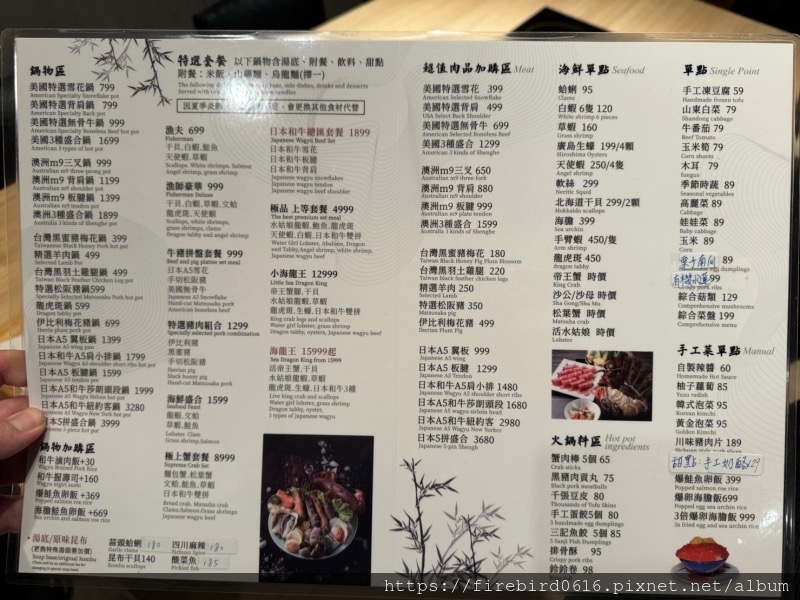 鍋物區
美國特選雪花鍋 799
American Specialty Snowflake pot
美國特選背肩鍋 799
美國特選無骨牛鍋 999
American Specialty Boneless Beef hot pot
美國3種盛合鍋 1699
American 3 types of hot pot
澳洲m9三叉鍋 999
澳洲m9 背肩鍋 1199
澳洲m9 板腱鍋 1399
澳洲3種盛合鍋 1899
台灣黑蜜豬梅花鍋 399
Taiwanese Black Honey Pork hot pot
精選羊肉鍋 499
Selected Lamb Pot
台灣黑羽土雞腿鍋 499
Taiwan Black Feather Chicken Leg pot
特選松阪豬鍋599
龍虎斑鍋599
Dragon tabby pot
伊比利梅花豬鍋 699
Iberia plum pork pot
日本A5 翼板鍋 1399
日本和牛A5肩小排鍋 1799
日本A5 板腱鍋 1599
日本和牛A5莎朗頭段鍋 1999
日本和牛A5紐約客鍋 3280
日本5拼盛合鍋 3999
鍋物加購區
和牛滷肉飯+30
Wagyu Braised Pork Rice
和牛飯壽司+160
爆鮭魚卵飯 +369
海膽鮭魚卵飯 +669
•湯底/原味昆布
(更換特殊湯底需加價)
Soup base/original kombu
蒜頭蛤蜊 180
Garlic clams
昆布干貝140
Kombu scallops
四川麻辣 180
Sichuan Spice
酸菜魚 185
Pickled fish
特選套餐 以下鍋物含湯底、附餐、飲料、甜點
附餐：米飯、山藥麵、烏龍麵(擇一)
漁夫 699
Fisherman
干貝,白蝦,鮭魚
天使蝦,草蝦
Scallops, White shrimps, Salmon
Angel shrimp, grass shrimp
漁師豪華 999
Fisherman Deluxe
干貝,白蝦,草蝦,文蛤
龍虎斑,天使蝦
Scallops, white shrimps,
grass shrimps, clams
Dragon tabby and angel shrimp
牛豬拼盤套餐 999
Beef and pig platter set meal
日本A5雪花
手切松阪豬
美國無骨牛
Japanese A5 Snowflake
Hand-cut Matsusaka pork
American boneless beef
特選豬肉組合 1299
Specially selected pork combination
伊比利豬
黑蜜豬
手切松阪豬
Iberian pig
black honey pig
Hand-cut Matsusaka pork
海鮮盛合 1599
Seafood Feast
龍蝦,文蛤
草蝦,鮭魚
Lobster, Clam
Grass shrimp,Salmon
極上蟹套餐 8999
Supreme Crab Set
麵包蟹,松葉蟹
文蛤,鮭魚,草蝦
日本和牛雙拼
Bread crab, Matsuba crab
Clams,Salmon,Grass shrimps
Japanese wagyu beef
日本和牛總匯套餐 1899
Japanese Wagyu Beef Set
日本和牛雪花
日本和牛板腱
日本和牛背肩
Japanese wagyu snowflakes
Japanese wagyu tendon
Japanese wagyu beef shoulder
極品 上等套餐 4999
The best premium set meal
水姑娘龍蝦,鮑魚,龍虎斑
天使蝦,白蝦,日本和牛雙拼
小海龍王 12999
Little Sea Dragon King
帝王蟹腳,干貝
水姑娘龍蝦,草蝦
龍虎斑,生蠔,日本和牛雙拼
King crab legs and scallops
Water girl lobster, grass shrimp
Dragon tabby, oysters, Japanese wagyu beef
海龍王 15999起
Sea Dragon King from 15999
活帝王蟹,干貝
水姑娘龍蝦,草蝦
龍虎斑,生蠔,日本和牛3種
Live king crab and scallops
Water girl lobster, grass shrimp
Dragon tabby, oysters,
3 types of Japanese wagyu
超值肉品加購區 Meat
美國特選雪花 399
American Selected Snowflake
美國特選背肩 499
USA Select Back Shoulder
美國特選無骨牛 699
American Selected Boneless Beef
美國3種盛合 1299
American 3 kinds of Shenghe
澳洲m9三叉 650
Australian m9 three fork
澳洲m9 背肩 880
Australian m9 shoulder
澳洲m9 板腱 999
Australian m9 plate tendon
澳洲3種盛合 1599
Australia 3 kinds of Shenghe
台灣黑蜜豬梅花 180
Taiwanese Black Honey Pig Plum Blossom
台灣黑羽土雞腿 220
Taiwan black feather chicken legs
精選羊肉 250
Selected Lamb
特選松阪豬 350
Matsusaka pig
伊比利梅花豬 499
Iberian Plum Pig
日本A5 翼板 999
Japanese A5 wing
日本A5 板腱 1299
Japanese A5 Tendon
日本和牛A5肩小排 1480
日本和牛A5莎朗頭段 1680
日本和牛A5紐約客 2980
日本A5拼盛合 3680
Japanese 5-pin Shenghe
海鮮單點 Seafood
蛤蜊 95
Clams
白蝦 6隻 120
White shrimp 6 pieces
草蝦 160
Grass shrimp
廣島生蠔 199/4顆
Hiroshima Oysters
天使蝦 250/4隻
Angel shrimp
軟絲 299
Neritic Squid
北海道干貝 299/2顆
Hokkaido scallops
海膽 399
Sea urchin
手臂蝦 450/隻
Arm shrimp
龍虎斑 450
dragon tabby
帝王蟹 時價
King Crab
沙公/沙母 時價
Sha Gong/Sha Mu
松葉蟹 時價
Matsuba crab
活水姑娘 時價
Lobster
火鍋料區 Hot pot ingredients
蟹肉棒 5個 65
Crab sticks
黑豬肉貢丸 75
Black pork meatballs
千張豆皮 80
Thousands of Tofu Skins
手工蛋餃5個 80
5 handmade egg dumplings
三記魚餃 5個 85
排骨酥 95
Crispy pork ribs
鈴鈴卷 98
單點 Single Point
手工凍豆腐 59
Handmade frozen tofu
山東白菜 79
Shandong cabbage
牛番茄 79
Beef Tomato
玉米筍 79
Corn shoots
木耳 79
fungus
季節時蔬 89
Seasonal vegetables
高麗菜 89
Cabbage
娃娃菜 89
Baby cabbage
玉米 89
Corn
89
egg dumplings
99
Crispy pork ribs
綜合菇類 129
Comprehensive mushrooms
綜合菜盤 199
Comprehensive menu
手工菜單點 Manual
自製辣醬 60
Homemade Hot Sauce
柚子蘿蔔 85
Yuzu radish
韓式泡菜 95
Korean Kimchi
黃金泡菜 95
Golden Kimchi
川味豬肉片 189
甜點：手工奶酪x29
爆鮭魚卵飯 399
Popped salmon roe rice
爆卵海膽飯699
Popped sea urchin rice
3倍爆卵海膽飯 999
https://firebird0616.pixnet.net/album